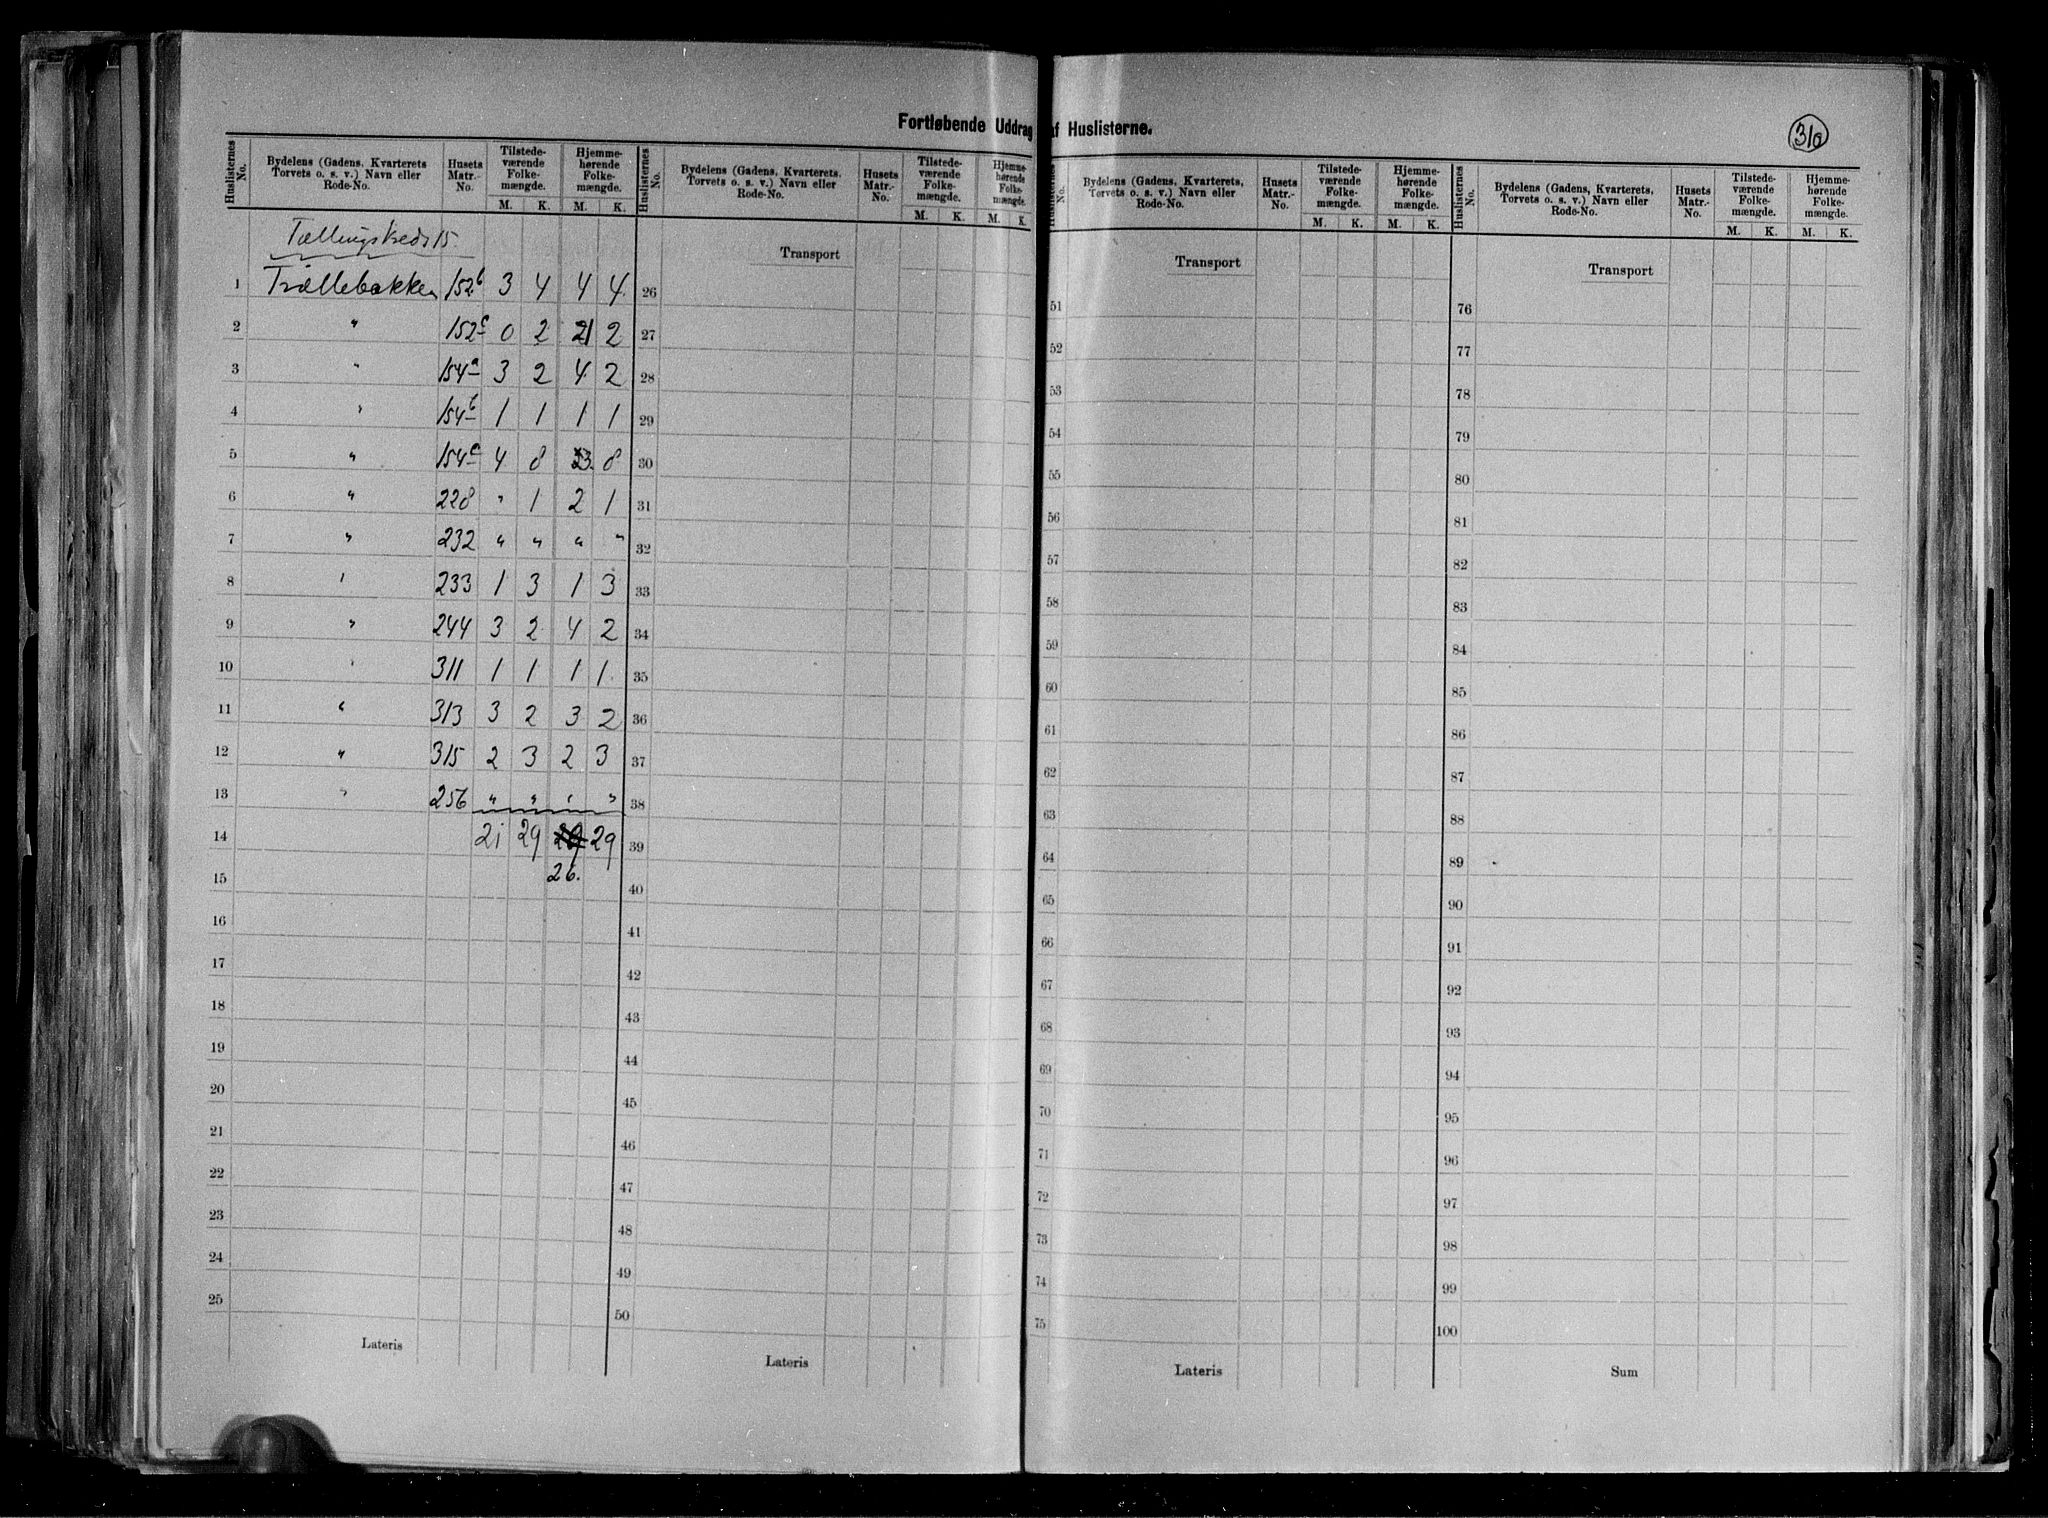 Fortløbende Uddrag af Huslisterne.
310
Huslisternes No. | Bydelens (Gadens, Kvarterets Torvets o. s. v.) Navn eller Rode-No. | Husets Matr.-No. | Tilstedeværende Folkemængde. M. K. | Hjemmehørende Folkemængde. M. K.
Huslisternes No. | Bydelens (Gadens, Kvarterets, Torvets o. s. v.) Navn eller Rode-No. | Husets Matr.-No. | Tilstedeværende Folkemængde. M. K. | Hjemmehørende Folkemængde. M. K.
Huslisternes No. | Bydelens (Gadens, Kvarterets, Torvets o. s. v.) Navn eller Rode-No. | Husets Matr.-No. | Tilstedeværende Folkemængde. M. K. | Hjemmehørende Folkemængde. M. K.
Huslisternes No. | Bydelens (Gadens, Kvarterets, Torvets o. s. v.) Navn eller Rode-No. | Husets Matr.-No. | Tilstedeværende Folkemængde. M. K. | Hjemmehørende Folkemængde. M. K.
Tællingskreds 15.
1 Trællebakken 152b 3 4 4 4
2 " 152c 0 2 2
3 " 154a 3 2 4 2
4 " 154b 1 1 1 1
5 " 154c 4 8 3 8
6 " 228 " 1 2 1
7 " 232 " " " "
8 " 233 1 3 1 3
9 " 244 3 2 4 2
10 " 311 1 1 1 1
11 " 313 3 2 3 2
12 " 315 2 3 2 3
13 " 256 " " " "
14 21 29 29
15 26.
16
17
18
19
20
21
22
23
24
25
Lateris
Transport
26
27
28
29
30
31
32
33
34
35
36
37
38
39
40
41
42
43
44
45
46
47
48
49
50
Lateris
Transport
51
52
53
54
55
56
57
58
59
60
61
62
63
64
65
66
67
68
69
70
71
72
73
74
75
Lateris
Transport
76
77
78
79
80
81
82
83
84
85
86
87
88
89
90
91
92
93
94
95
96
97
98
99
100
Sum